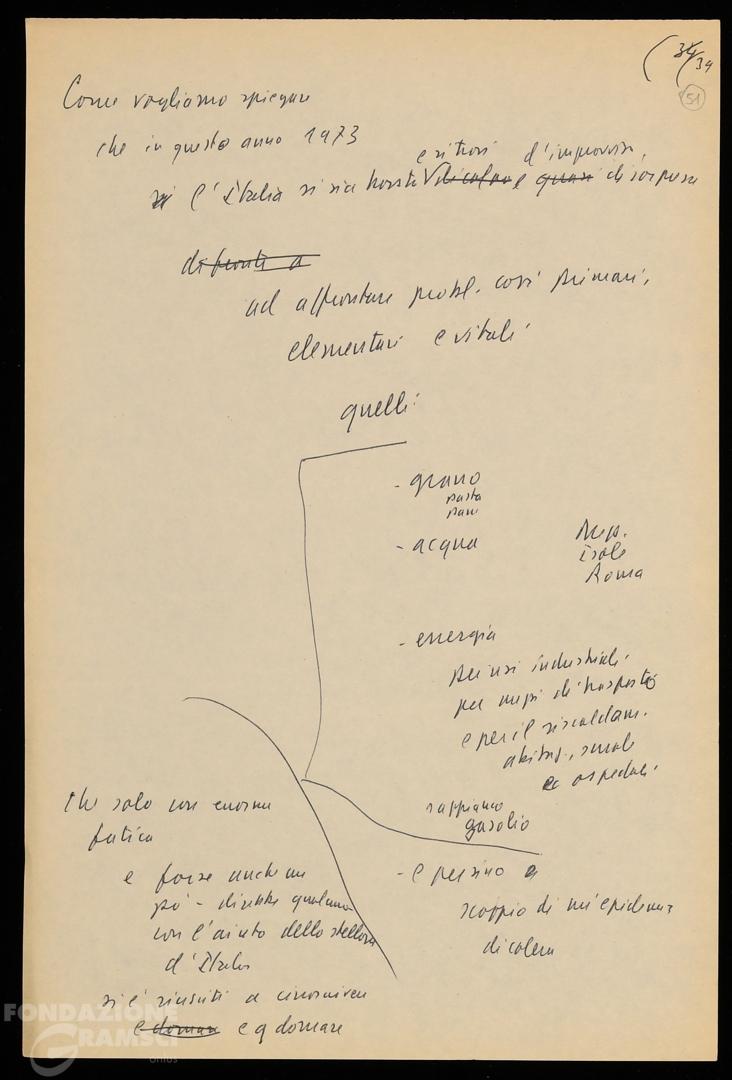 (34/34
51
Come vogliamo spiegare
che in questo anno 1973
e si trovi d'improvviso,
si l'Italia si sia trovata di colpo e quasi di sorpresa
di fronte a
ad affrontare probl. così primari,
elementari e vitali
quelli:
- grano
pasta
pane
- acqua
Nap.
isole
Roma
- energia
per usi industriali
per mezzi di trasporto
e per il riscaldam.
abitaz., scuole
e ospedali
sappiamo
gasolio
- e persino a
scoppio di un'epidemia
di colera
che solo con enorme
fatica
e forse anche un
pò - direbbe qualcuno
con l'aiuto dello stellone
d'Italia
si è riusciti a circoscrivere
e domare e a domare
FONDAZIONE
GRAMSCI
onlus